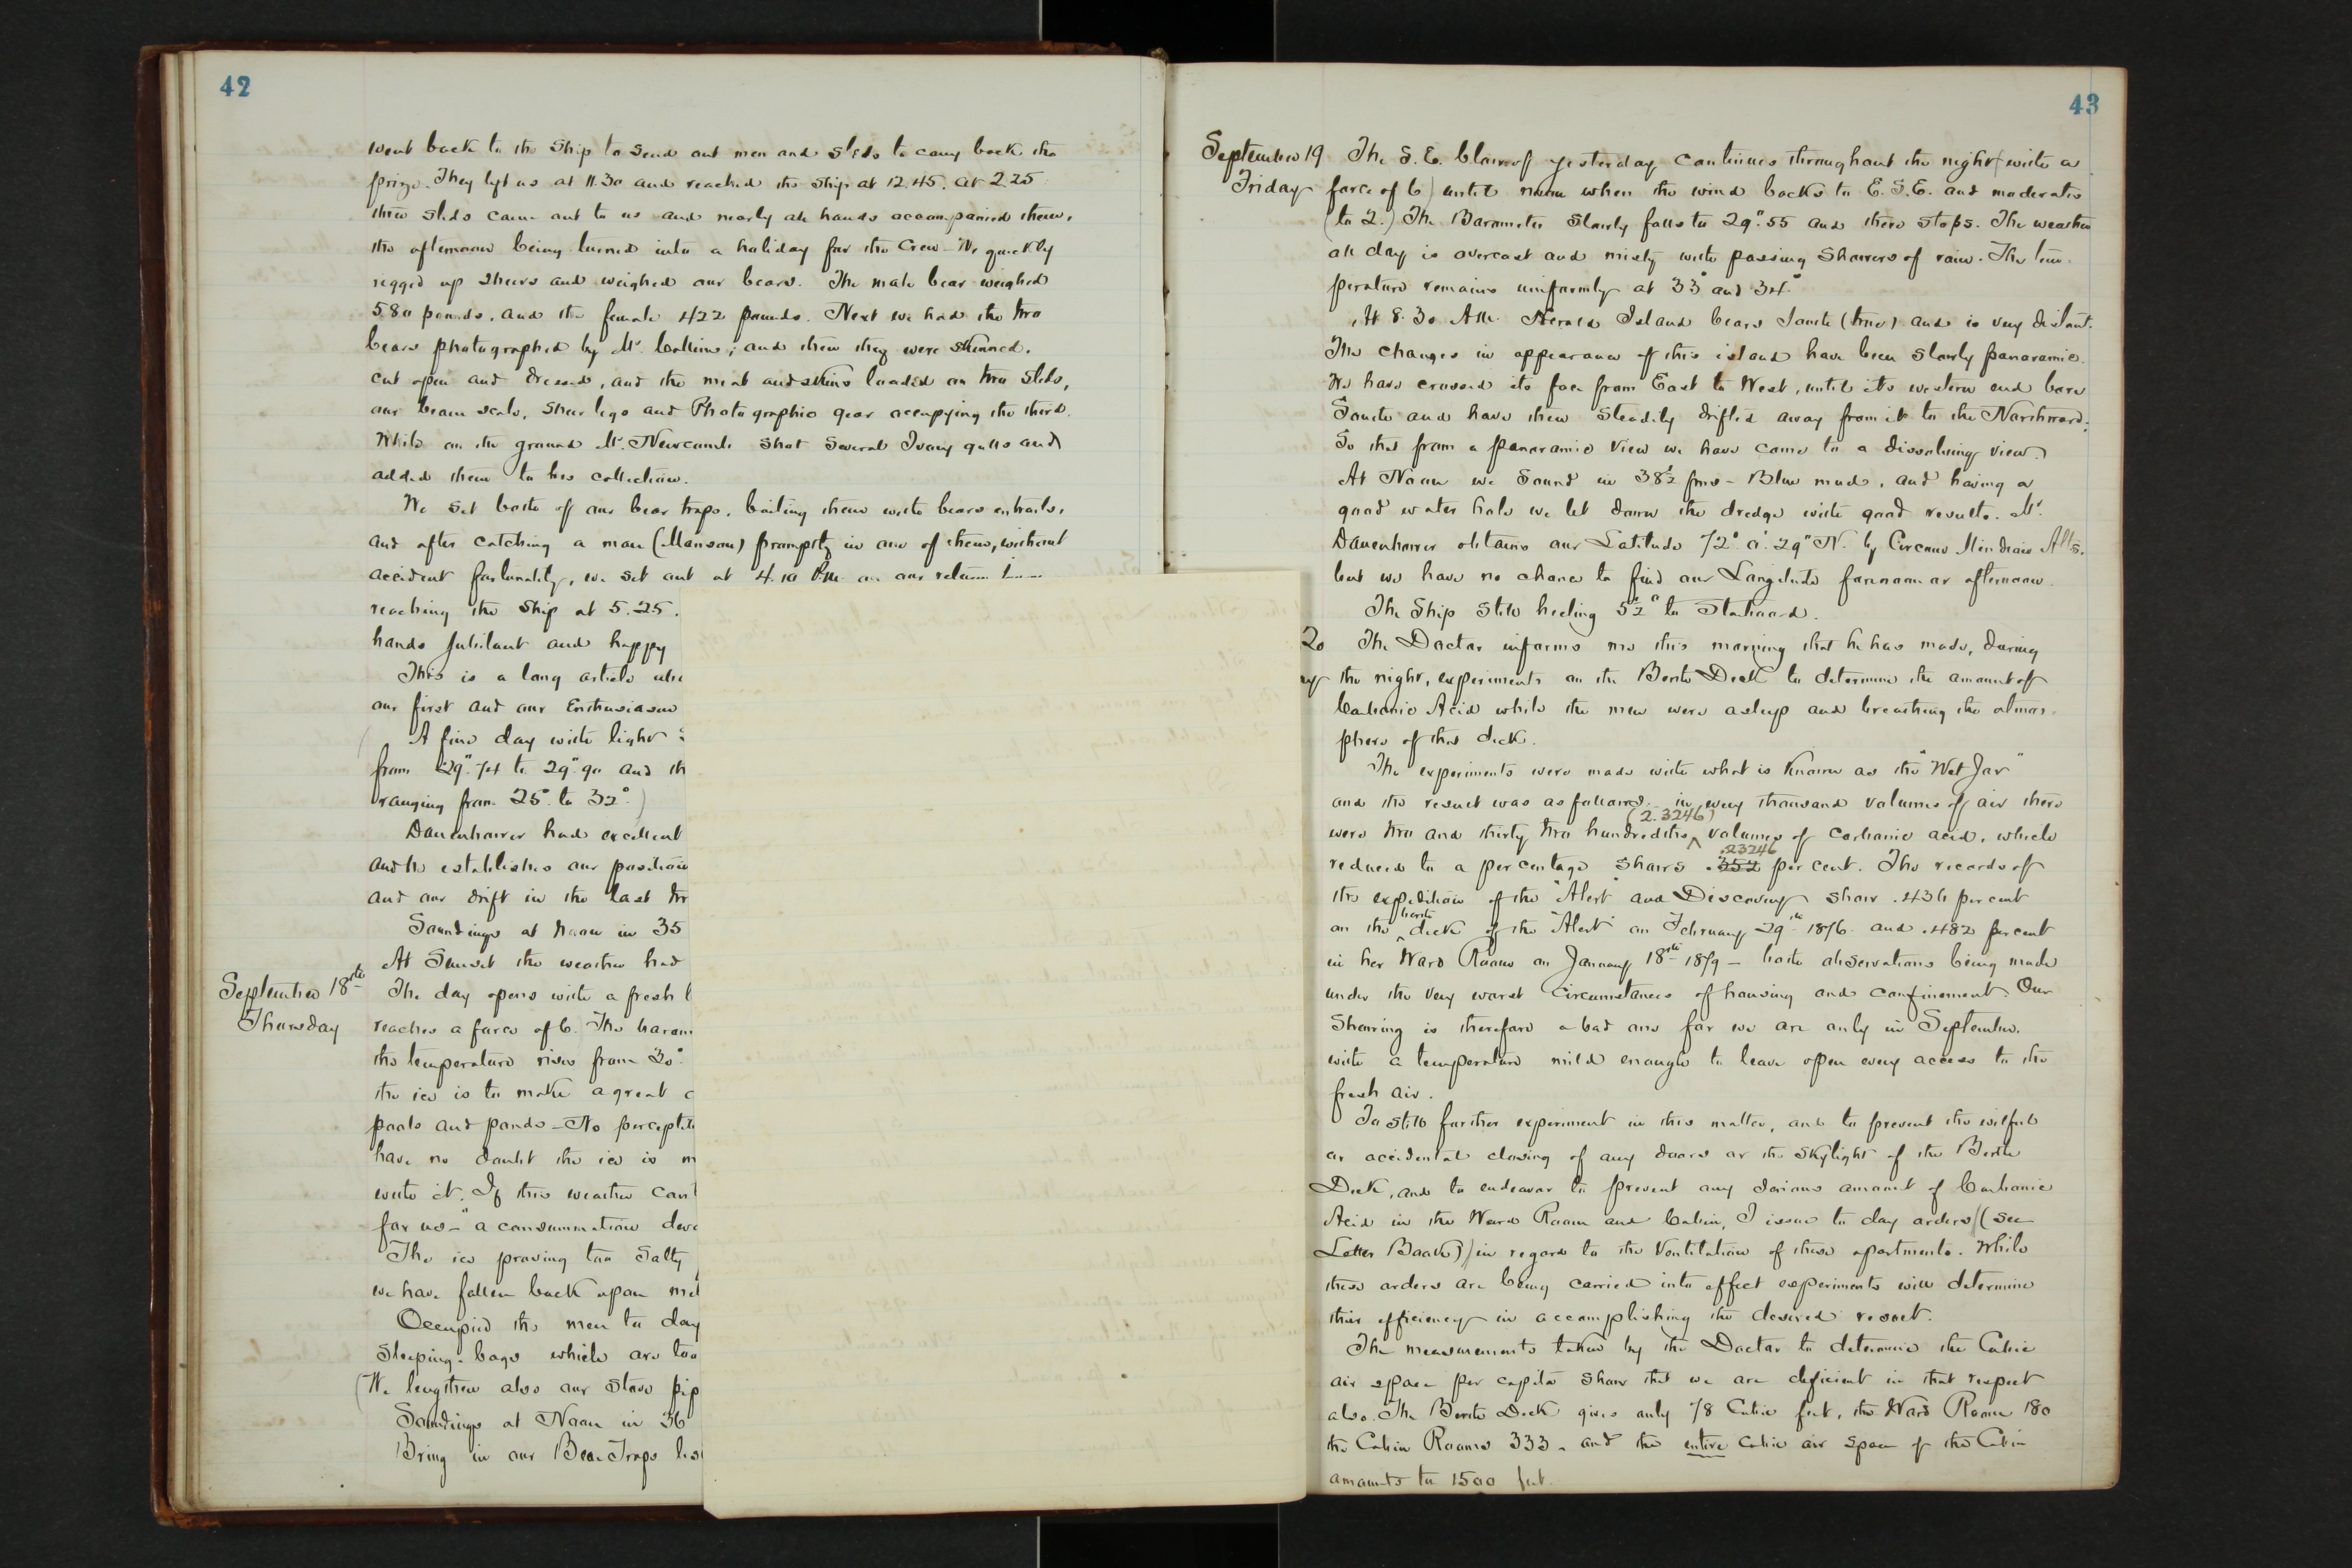 42
went back to the Ship to send out men and sleds to carry back the
prize. They left us at 11.30 and reached the ship at 12.45. At 2.25
three sleds came out to us and nearly all hands accompanied them,
the afternoon being turned into a holiday for the Crew - We quickly
rigged up sheers and weighed our bears. The male bear weighed
580 pounds, and the female 422 pounds. Next we had the two
bears photographed by Mr. Collins; and then they were skinned,
cut open and dressed, and the meat and skins loaded on two sleds,
our beam scale, sheer legs and Photographic gear occupying the third.
While on the ground Mr. Newcomb shot several Ivory gulls and
added them to his collection.
We set both of our bear traps, baiting them with bears entrails,
and after catching a man (Mansen) promptly in one of them, without
accident fortunately, we set out at 4.10 P.M. on our return
reaching the ship at 5.25.
hands jubilant and happy
This is a long article
our first and our Enthusiasm
(A fine day with light
from 29".74 to 29".90 and th
ranging from 25° to 32°.)
Danenhower had excellent
and he establishes our position
and our drift in the last
Soundings at Noon in 35
At Sunset the weather had
September 18th The day opens with a fresh
Thursday reaches a force of 6. The barom
the temperature rises from 30°.
the ice is to make a great
pools and ponds - No percept
have no doubt the ice is
with it. If this weather con
for us - "a consummation dev
The ice proving too salty
we have fallen back upon
Occupied the men to day
Sleeping-bags which are too
(We lengthen also our stove pip
Soundings at Noon in 36
Bring in our Bear Traps
43
September 19 The S.E. blow of yesterday continues throughout the night (with a
Friday force of 6) until noon when the wind backs to E.S.E. and moderates
(to 2.) The Barometer slowly falls to 29".55 and there stops. The weather
all day is overcast and misty with passing showers of rain. The tem
perature remains uniformly at 33° and 34°
At 8.30 A.M. Herald Island bears South (true) and is very distant.
The changes in appearance of this island have been slowly panoramic.
We have crossed its face from East to West, until its western end bore
South and have then steadily drifted away from it to the Northward;
So that from a panoramic view we have come to a dissolving view.
At Noon we sound in 38½ fms - Blue mud, and having a
good water hole we let down the dredge with good results. Mr.
Danenhower obtains our Latitude 72° 0' 29" N. by Circum Meridian Alts.
but we have no chance to find our Longitude forenoon or afternoon.
The Ship still heeling 5½° to Starboard.
20 The Doctor informs me this morning that he has made, during
the night, experiments on the Berth Deck to determine the amount of
Carbonic Acid while the men were asleep and breathing the atmos
phere of that deck.
The experiments were made with what is known as the "Wet Jar"
and the result was as follows. in every thousand volumes of air there
(2.3246)
were two and thirty two hundredths ^ volumes of carbonic acid, which
.23246
reduced to a percentage shows .352 per cent. The records of
the expedition of the "Alert" and Discovery show .436 per cent
berth
on the ^ deck of the "Alert" on February 29th 1876 and .482 per cent
in her Ward Room on January 18th 1879 - both observations being made
under the very worst circumstances of housing and confinement. Our
Showing is therefore a bad one for we are only in September,
with a temperature mild enough to leave open every access to the
fresh air.
To still further experiment in this matter, and to prevent the wilful
or accidental closing of any doors or the skylight of the Berth
Deck, and to endeavor to prevent any serious amount of Carbonic
Acid in the Ward Room and Cabin, I issue to day orders ((See
Letter Book)) in regard to the Ventilation of these apartments. While
these orders are being carried into effect experiments will determine
their efficiency in accomplishing the desired result.
The measurements taken by the Doctor to determine the Cubic
air space per capita show that we are deficient in that respect
also. The Berth Deck gives only 78 Cubic feet, the Ward Room 180
the Cabin Rooms 333, and the entire Cubic air space of the Cabin
amounts to 1500 feet.